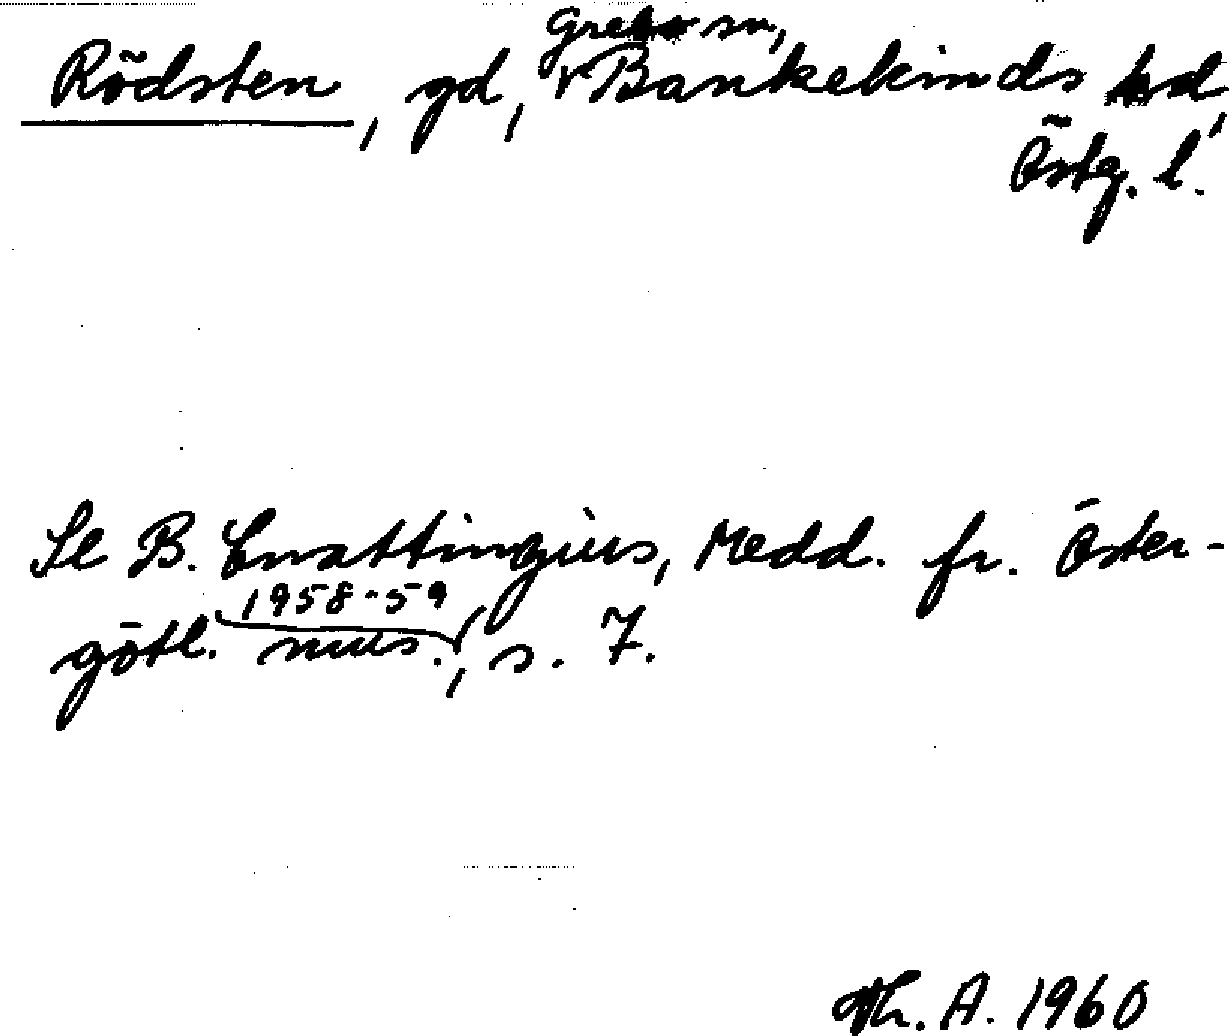 Rödsten, gd, Grebo sn, Bankekinds hd,
Östg. l.
Se B. Cnattingius, Medd. fr. Öster-
götl. mus. 1958-59, s. 7.
Th. A. 1960